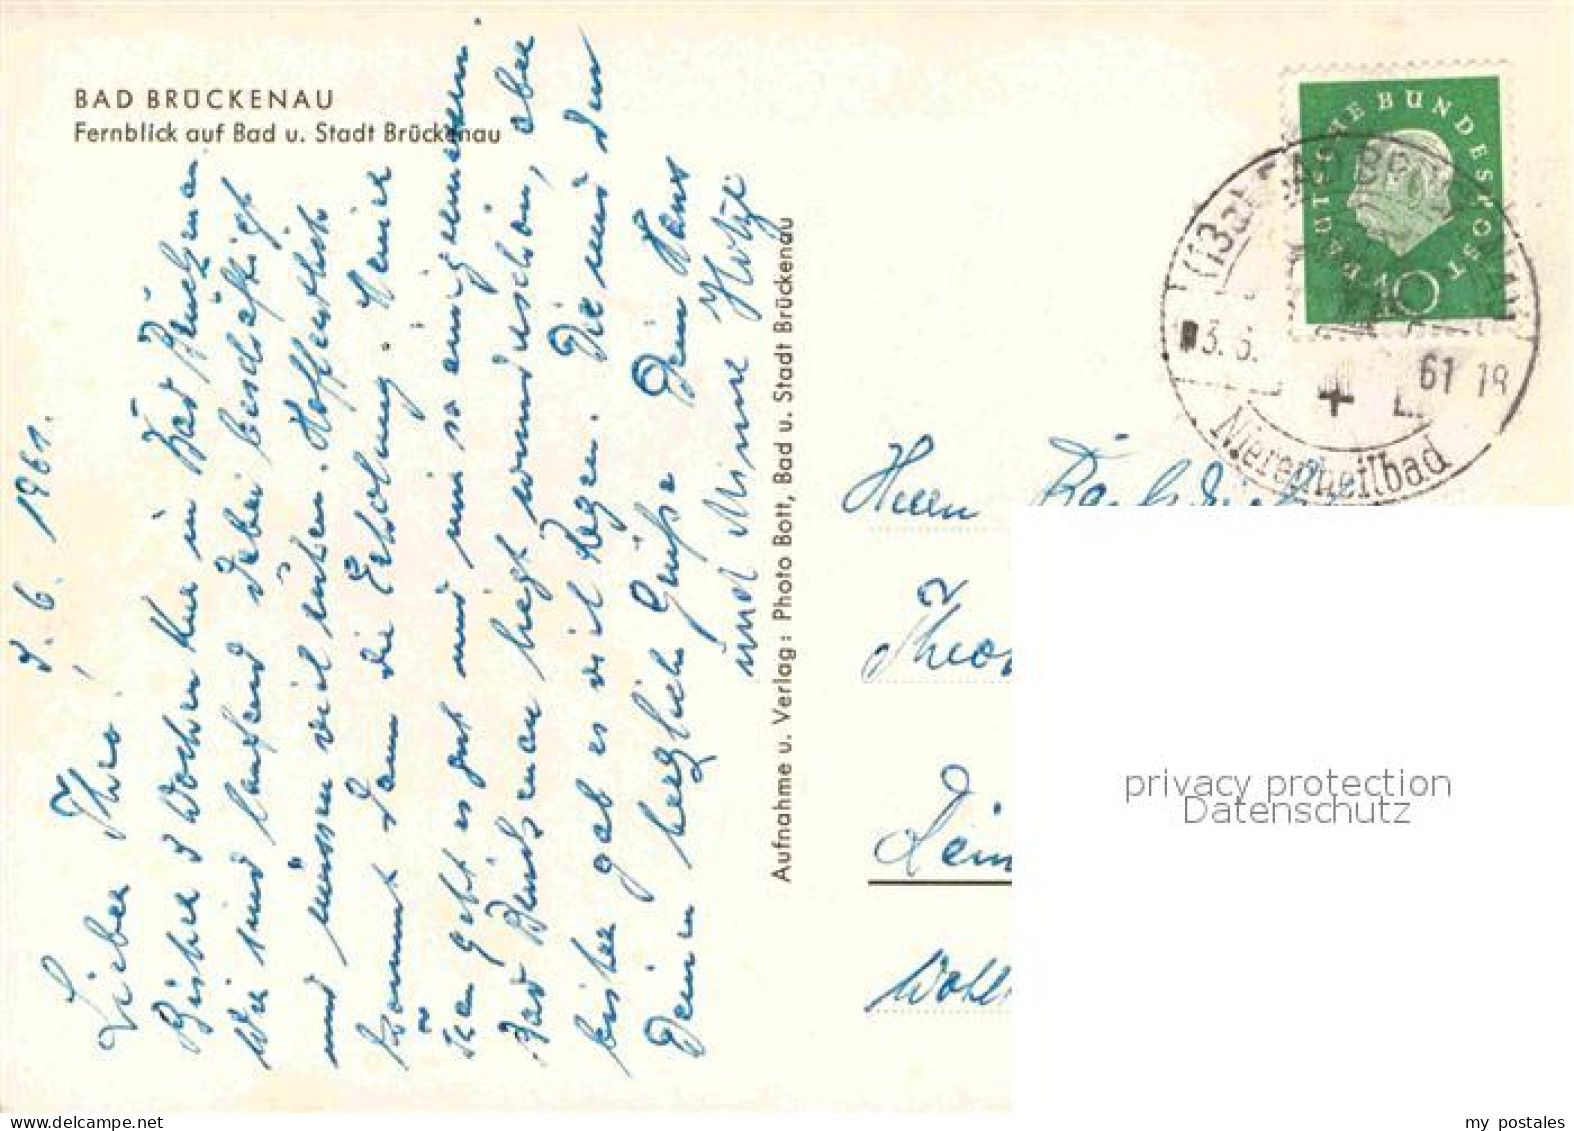 BAD BRÜCKENAU
Fernblick auf Bad u. Stadt Brückenau
3. 6. 1961.
Lieber Theo!
Bisher 3 Wochen Kur in Bad Brückenau.
Wir sind laufend dabei beschäftigt
und müssen viel Hoffentlich
kommt dann die Erholung. Meine
geht es gut und mir so einigermassen.
Bad Brückenau liegt wunderschön, aber
bisher gab es viel Regen. Dir und den
Deinen herzliche Grüße Dein Hans
und Minne
Aufnahme u. Verlag: Photo Bott, Bad u. Stadt Brückenau
DEUTSCHE BUNDESPOST
10
(13a) BAD BRÜCKENAU
3.6.61-18
Nierenheilbad
Herrn
Theo
privacy protection
Datenschutz
www.ansichtskarten-center.de
my postales